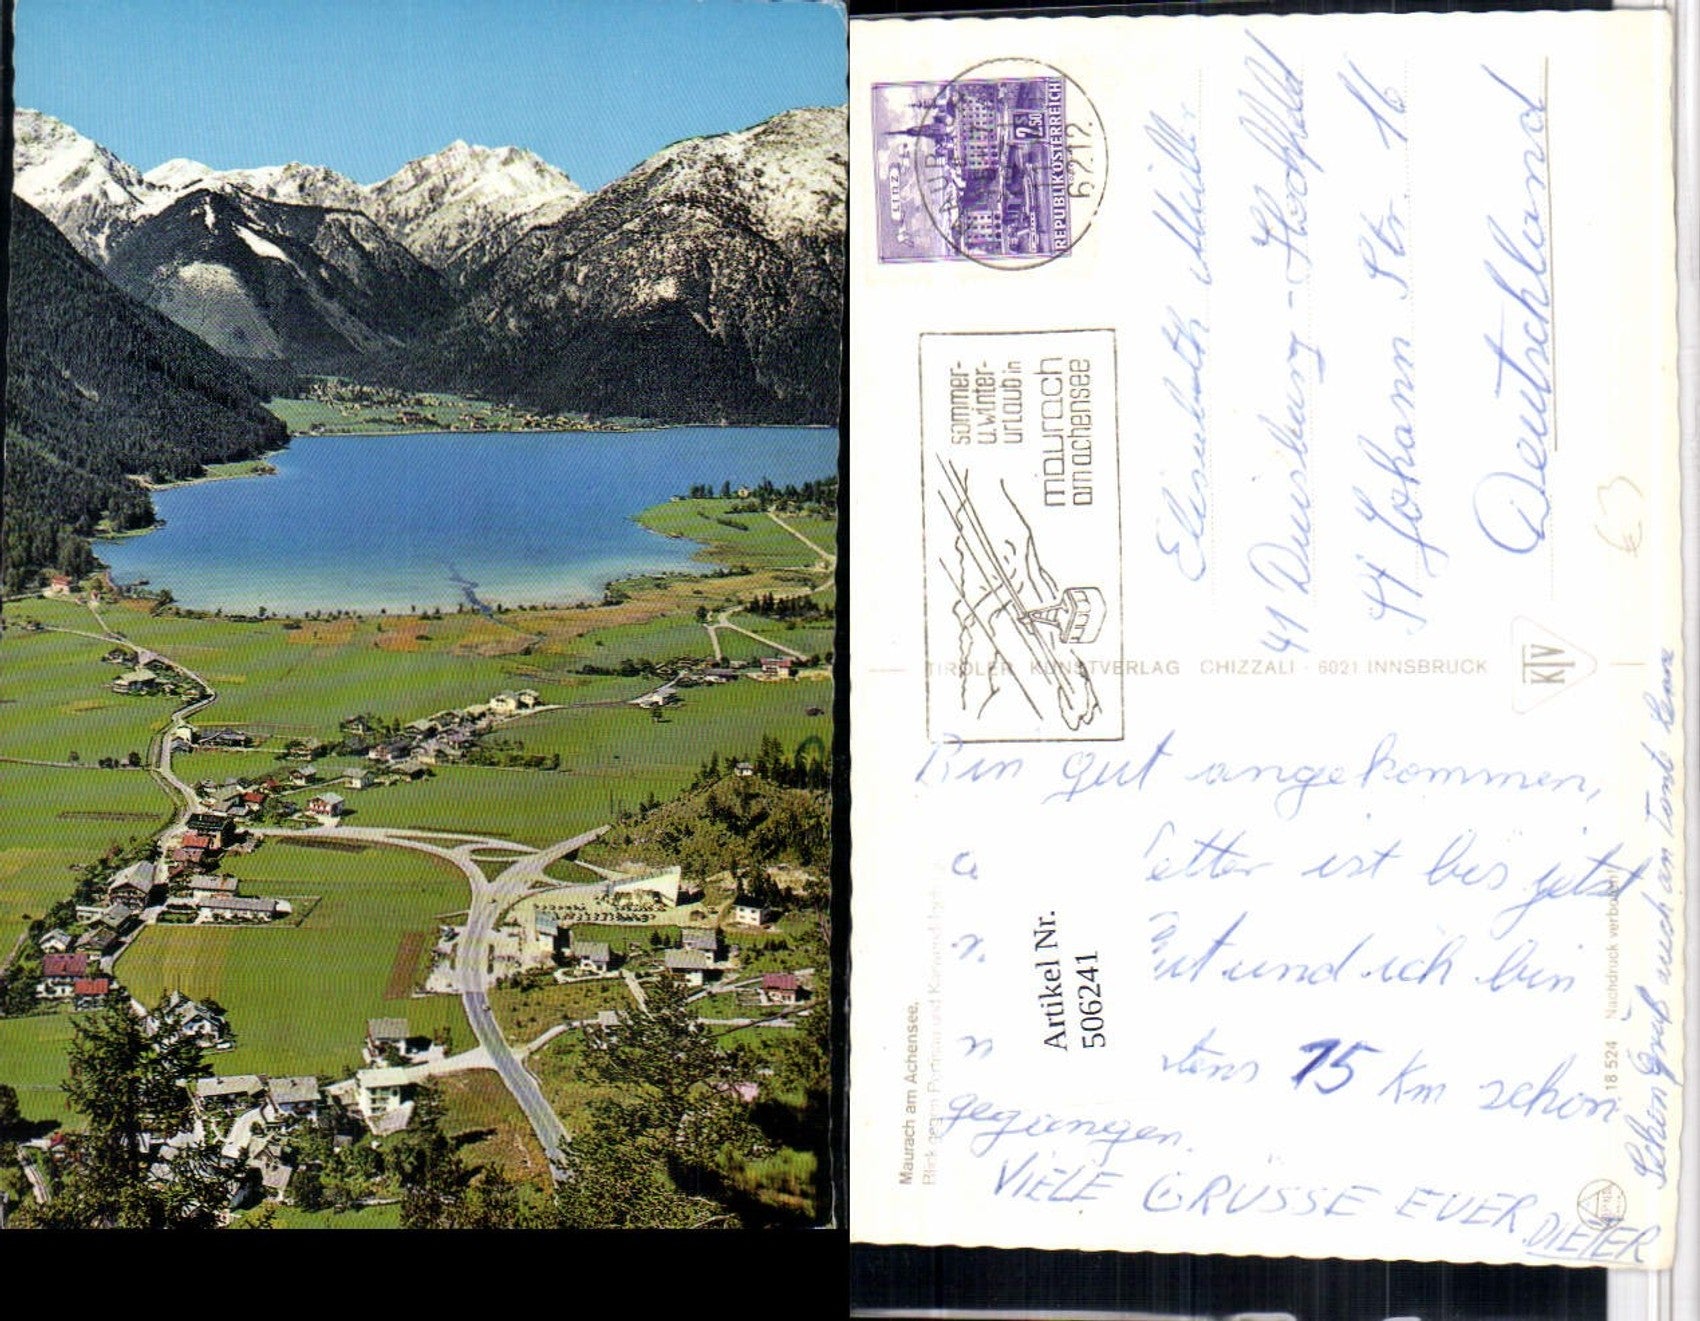 LINZ
2.50
REPUBLIK ÖSTERREICH
6212
sommer-
u.winter-
urlaub in
maurach
am achensee
Elisabeth Müller
41 Duisburg-Hochfeld
Johann Str. 16
Deutschland
€3
TIROLER KUNSTVERLAG CHIZZALI · 6021 INNSBRUCK
KTV
Bin gut angekommen,
etter ist bis jetzt
ut und ich bin
tens 15 Km schon
gegangen.
VIELE GRÜSSE EUER DIETER
Schön Gruß auch an Tante Lene
Artikel Nr.
506241
Maurach am Achensee.
Blick gegen Pertisau und Karwendel
18 524 Nachdruck verboten